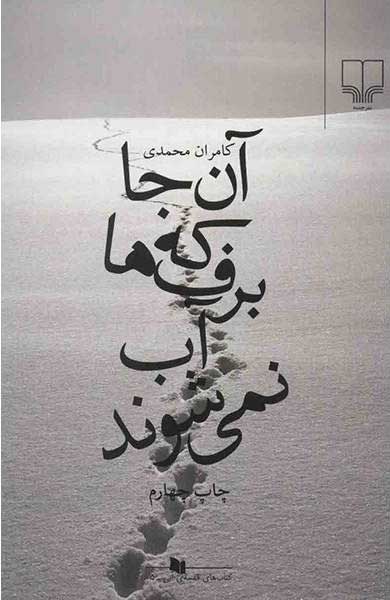 نشر چشمه
کامران محمدی
آن جا
که
برف‌ها
آب
نمی‌شوند
چاپ چهارم
کتاب‌های قفسه‌ی آبی